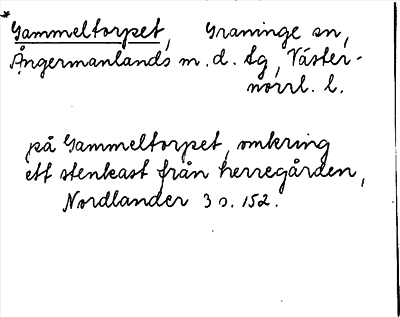 *
Gammeltorpet, Graninge sn,
Ångermanlands m. d. tg, Väster-
norrl. l.
på Gammeltorpet, omkring
ett stenkast från herregården,
Nordlander 3 s. 152.